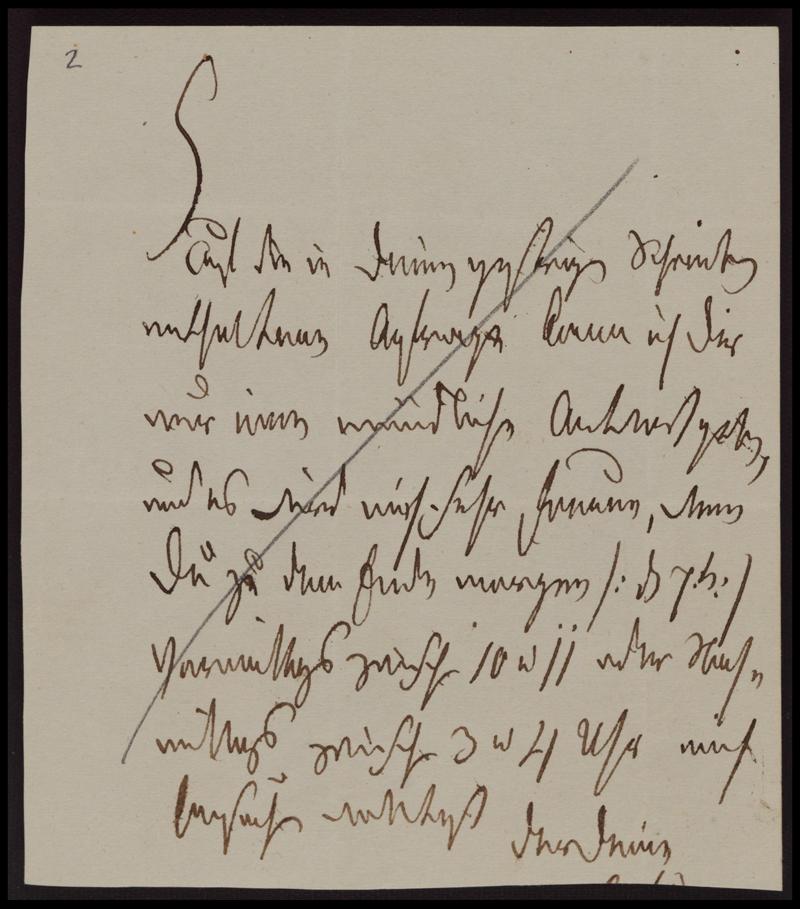 2
Auf die in Deinem gestrigen Schreiben
enthaltene Anfrage kann ich Dir
nur eine mündliche Antwort geben,
und es wird mich sehr freuen, wenn
Du zu dem Ende morgen /: d 7t. :/
Vormittags zwisch 10 u 11 oder Nach-
mittags zwisch 3 u 4 Uhr mich
besuchen wolltest
der Deine